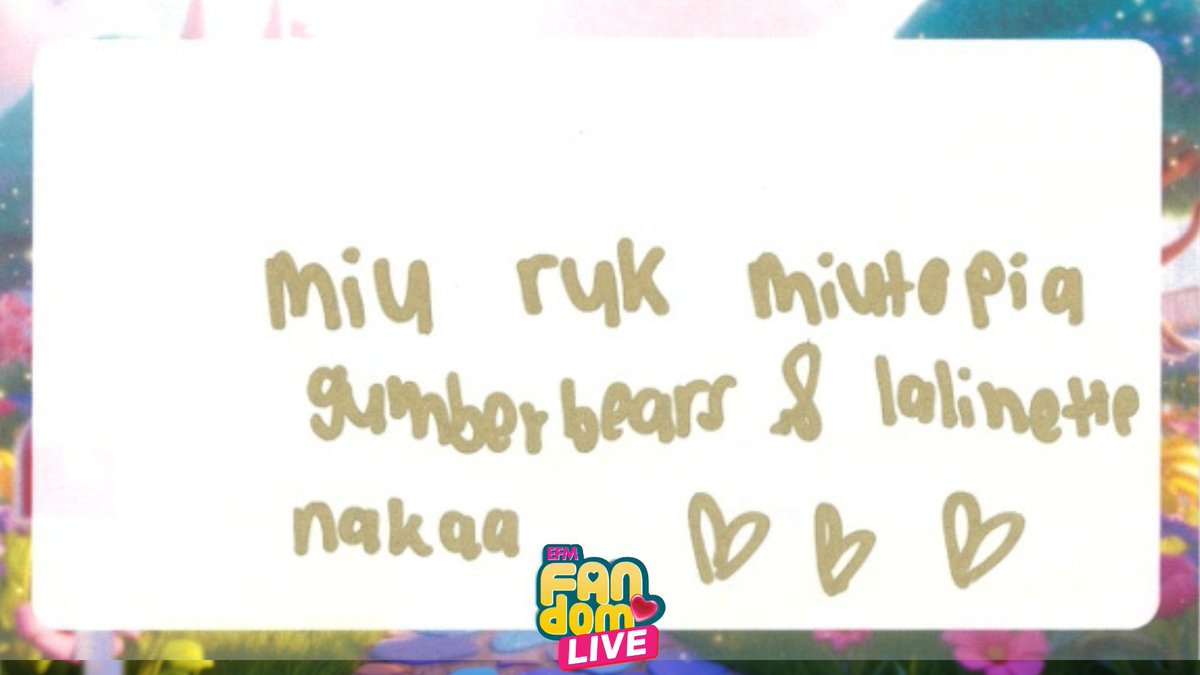 miu ruk miutopia
gumberbears & lalinette
nakaa ♡ ♡ ♡
EFM
FAN
dom
LIVE